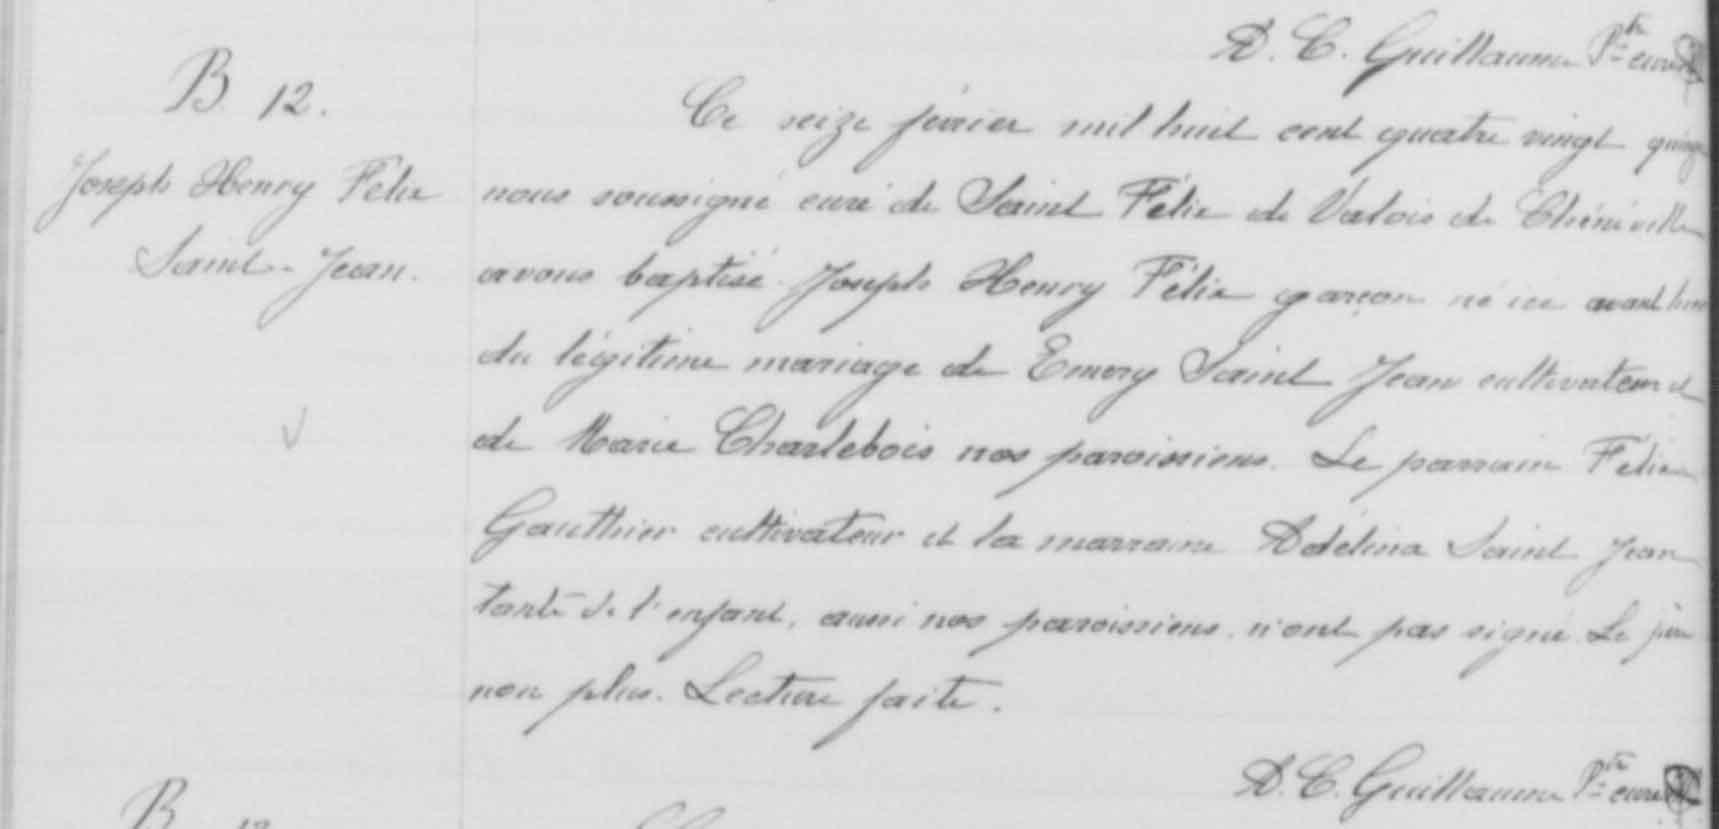 D. C. Guillaume Ptre curé
B 12.
Ce seize février mil huit cent quatre vingt quinze
Joseph Henry Félix
nous soussigné curé de Saint Félix de Valois de Chénéville
Saint-Jean.
avons baptisé Joseph Henry Félix garçon né ici avant hier
du légitime mariage de Emery Saint Jean cultivateur et
de Marie Charlebois nos paroissiens. Le parrain Félix
Gauthier cultivateur et la marraine Adélina Saint Jean
tante de l'enfant, aussi nos paroissiens n'ont pas signé. Le père
non plus. Lecture faite.
D. C. Guillaume Ptre curé
B